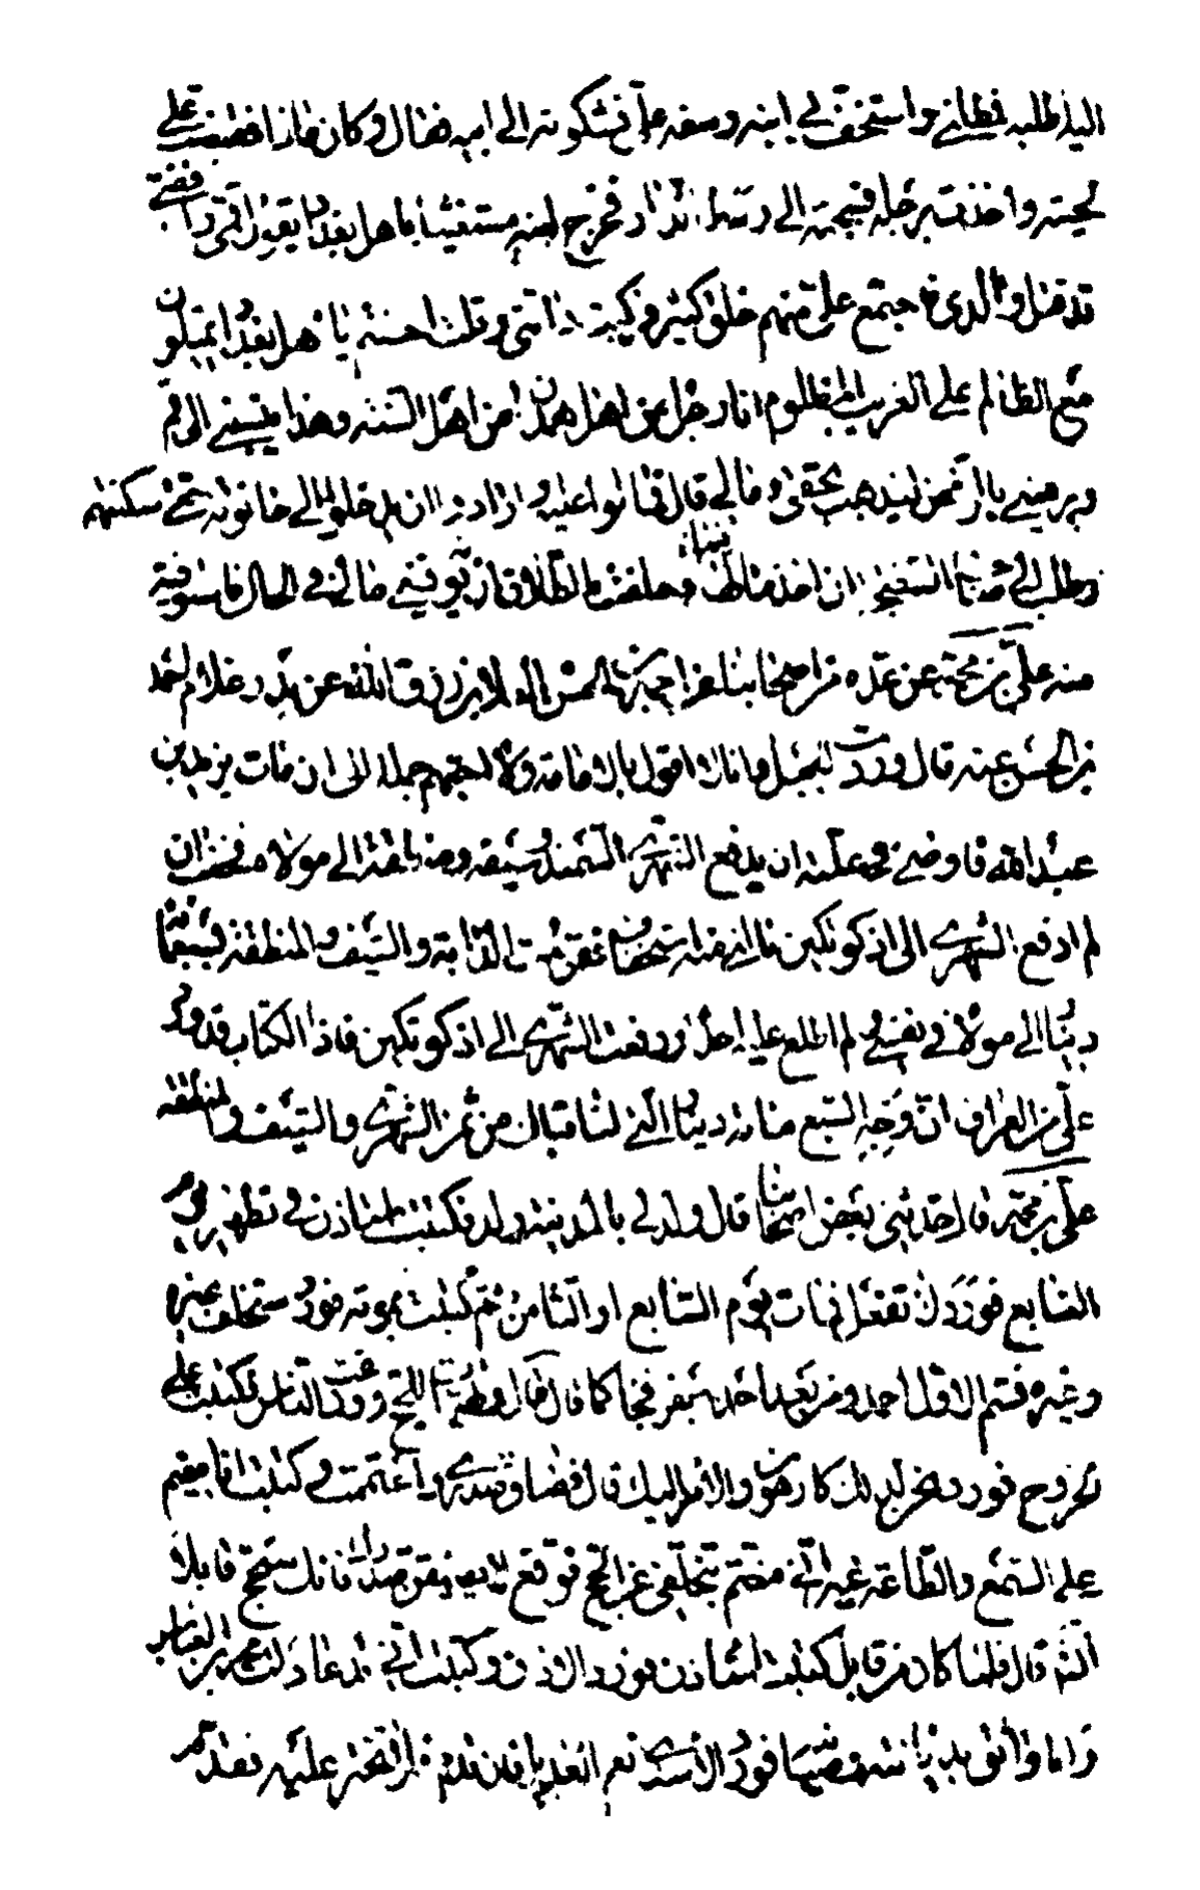 اليه اطلبه فطلني واستخف بي ابنه وسفه علي فشكوته الى ابيه فقال وكان ماذا فقبضت على
لحيته واخذت برجله فسحبته الى وسط الدار فخرج ابنه مستغيثا باهل بغداد يقول قمي رافضي
قد قتل والدي فاجتمع علي منهم خلق كثير فركبت دابتي وقلت احسنتم يا اهل بغداد تميلون
مع الظالم على الغريب المظلوم انا رجل من اهل همدان من اهل السنة وهذا ينسبني الى قم
ويرميني بالرفض ليذهب بحقي ومالي قال فمالوا عليه وارادوا ان يدخلوا الى حانوته حتى سكنتهم
وطلب الي صاحب السفتجة ان اخذ مالها وحلف بالطلاق ان يوفيني مالي في الحال فاستوفيته
منه علي بن محمد عن عدة من اصحابنا عن احمد بن الحسن والعلا بن رزق الله عن بدر غلام احمد
بن الحسن عنه قال وردت الجبل وانا لا اقول بالامامة ولا احبهم جملة الى ان مات يزيد بن
عبد الله فاوصى في علته ان يدفع الشهري السمند وسيفه ومنطقته الى مولاه فخفت ان
لم ادفع الشهري الى اذكوتكين نالني منه استخفاف فقومت الدابة والسيف والمنطقة بسبعمائة
دينار في نفسي ولم اطلع عليه احدا ودفعت الشهري الى اذكوتكين فاذا الكتاب قد ورد
علي من العراق ان وجه السبع مائة دينار التي لنا قبلك من ثمن الشهري والسيف والمنطقة
علي بن محمد قال حدثني بعض اصحابنا قال ولد لي بالمدينة ولد فكتبت استاذن في تطهيره يوم
السابع فورد لا تفعل فمات يوم السابع او الثامن ثم كتبت بموته فورد ستخلف غيره
وغيره فسم الاول احمد ومن بعد احمد جعفر فجاء كما قال قال وتهيات للحج وودعت الناس وكنت على
الخروج فورد نحن لذلك كارهون والامر اليك قال فضاق صدري واغتممت وكتبت انا مقيم
على السمع والطاعة غير اني مغتم بتخلفي عن الحج فوقع لا يضيقن صدرك فانك ستحج قابلا
ان شاء الله قال فلما كان من قابل كتبت استاذن فورد الاذن وكتبت اني عادلت محمد بن العباس
وانا واثق بديانته وصيانته فورد الاسدي نعم العديل فان قدم فلا تختر عليه فقدم